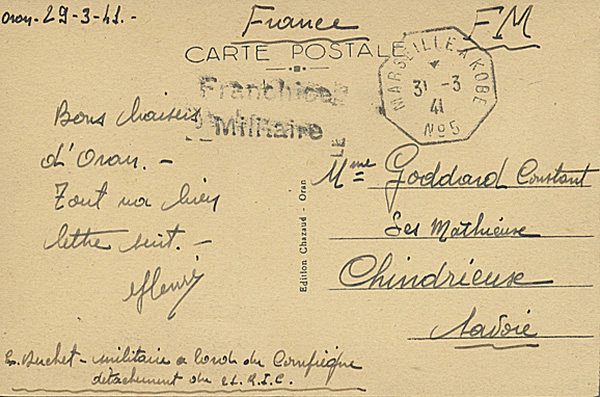 Oran - 29-3-41. -
France
FM
CARTE POSTALE
Franchise
Militaire
MARSEILLE A KOBE
31 -3
41
No 5
LE
Bons baisers
d'Oran. -
Tout va bien
lettre suit. -
Henri
Edition Chazaud - Oran
Mme Goddard Constant
Les Mathieuse
Chindrieuse
Savoie
Buchet - militaire a bord du Compiègne
détachement du